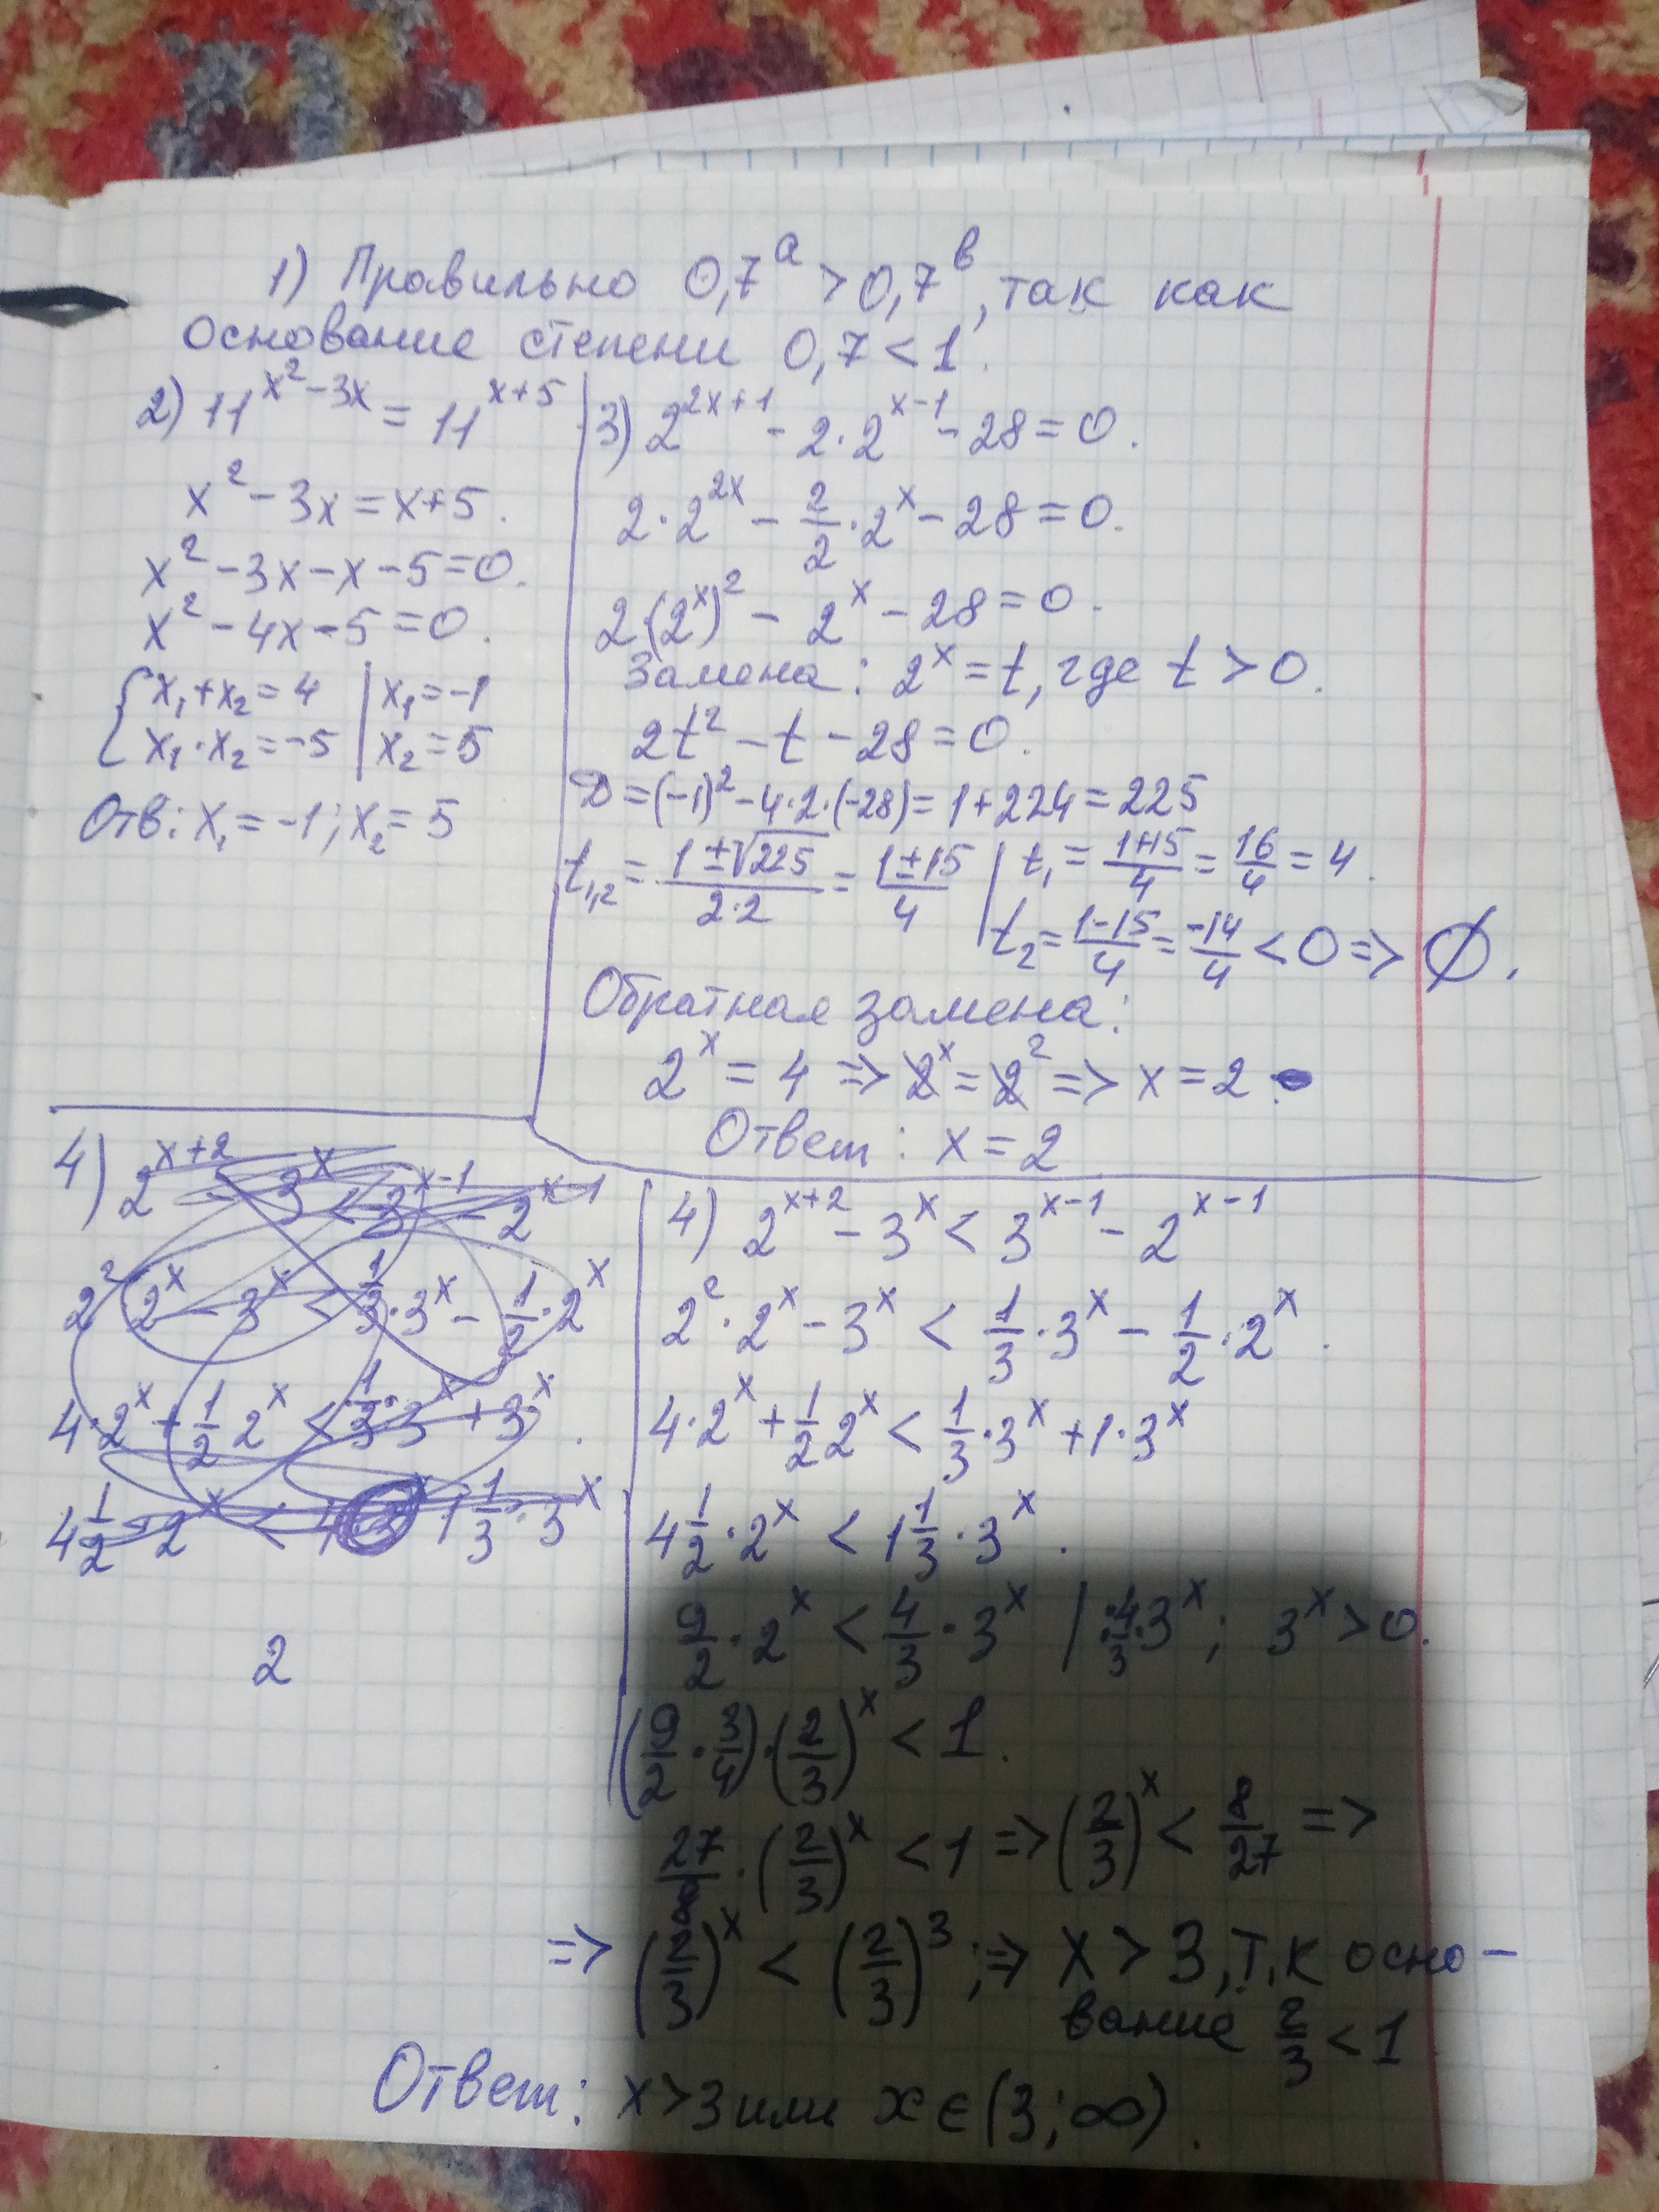 1) Правильно 0,7^a > 0,7^в, так как
основание степени 0,7 < 1.
2) 11^(x²-3x) = 11^(x+5)
x² - 3x = x + 5.
x² - 3x - x - 5 = 0.
x² - 4x - 5 = 0.
{ x₁ + x₂ = 4 | x₁ = -1
x₁ · x₂ = -5 | x₂ = 5
Отв: x₁ = -1; x₂ = 5
3) 2^(2x+1) - 2·2^(x-1) - 28 = 0.
2·2^(2x) - 2/2·2^x - 28 = 0.
2(2^x)² - 2^x - 28 = 0.
Замена: 2^x = t, где t > 0.
2t² - t - 28 = 0.
D = (-1)² - 4·2·(-28) = 1 + 224 = 225
t₁,₂ = (1±√225)/(2·2) = (1±15)/4 | t₁ = (1+15)/4 = 16/4 = 4.
t₂ = (1-15)/4 = -14/4 < 0 => ∅.
Обратная замена:
2^x = 4 => 2^x = 2² => x = 2.
Ответ: x = 2
4) 2^(x+2) - 3^x < 3^(x-1) - 2^(x-1)
2²·2^x - 3^x < 1/3·3^x - 1/2·2^x
4·2^x + 1/2 2^x < 1/3·3^x + 3^x.
4 1/2·2^x < 1 1/3·3^x
2
4) 2^(x+2) - 3^x < 3^(x-1) - 2^(x-1)
2²·2^x - 3^x < 1/3·3^x - 1/2·2^x.
4·2^x + 1/2 2^x < 1/3·3^x + 1·3^x
4 1/2·2^x < 1 1/3·3^x.
9/2·2^x < 4/3·3^x | :4/3·3^x; 3^x > 0.
(9/2·3/4)·(2/3)^x < 1.
27/8·(2/3)^x < 1 => (2/3)^x < 8/27 =>
=> (2/3)^x < (2/3)³; => x > 3, т.к осно-
вание 2/3 < 1
Ответ: x > 3 или x ∈ (3; ∞).